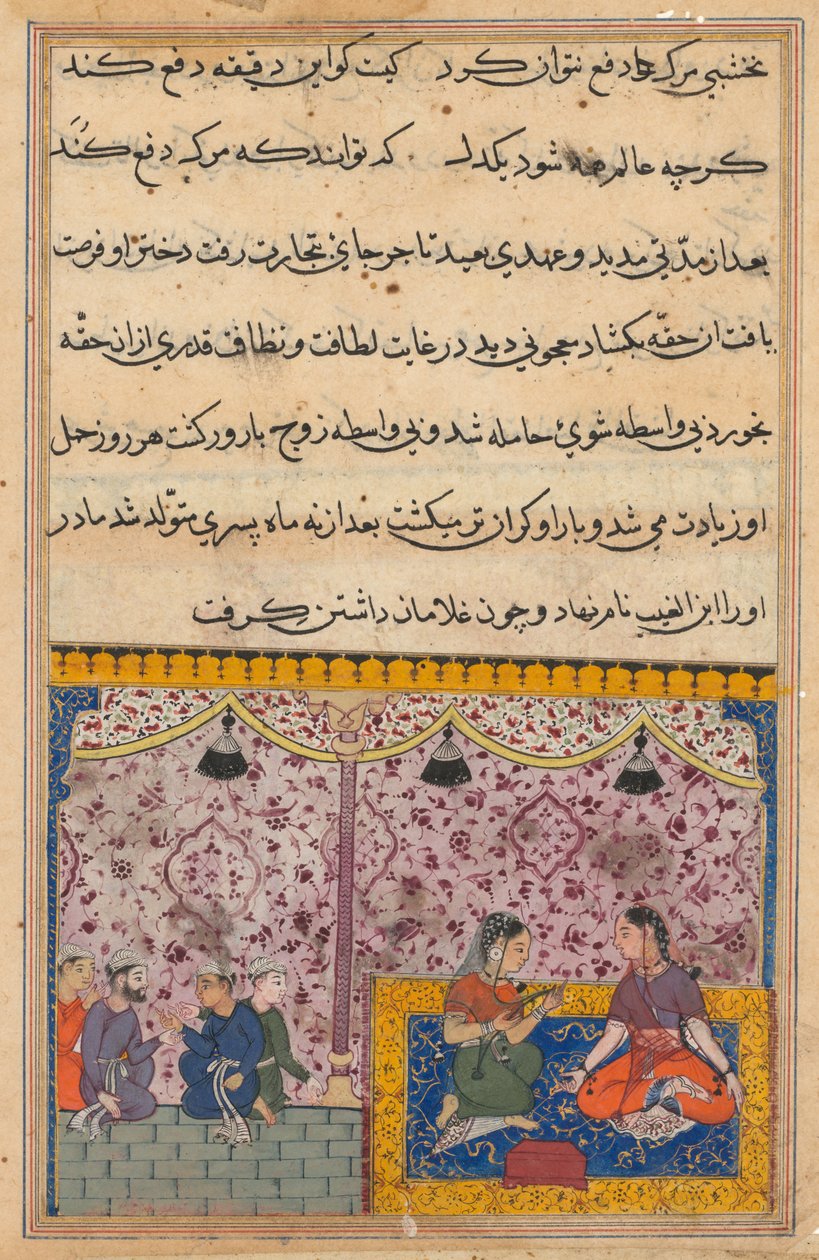 نخشبي مرك را دفع نتوان كرد كيست كو اين دقيقه دفع كند
كرچه عالم همه شود يكدل كه توانند كه مرك دفع كُنَد
بعد از مدّتي مديد و عهدي بعيد تاجر جايئ بتجارت رفت دختر او فرصت
يافت ان حقّه بكشاد معجوني ديد در غايت لطافت و نظافت قدري ازان حقّه
بخورد بي واسطه شوئ حامله شد و بي واسطه زوج بارور كشت هر روز حمل
او زيادت مي شد و بار او كران تر ميكشت بعد از نه ماه پسري متولّد شد مادر
او را ابن الغيب نام نهاد و چون غلامان داشتن كِرفت